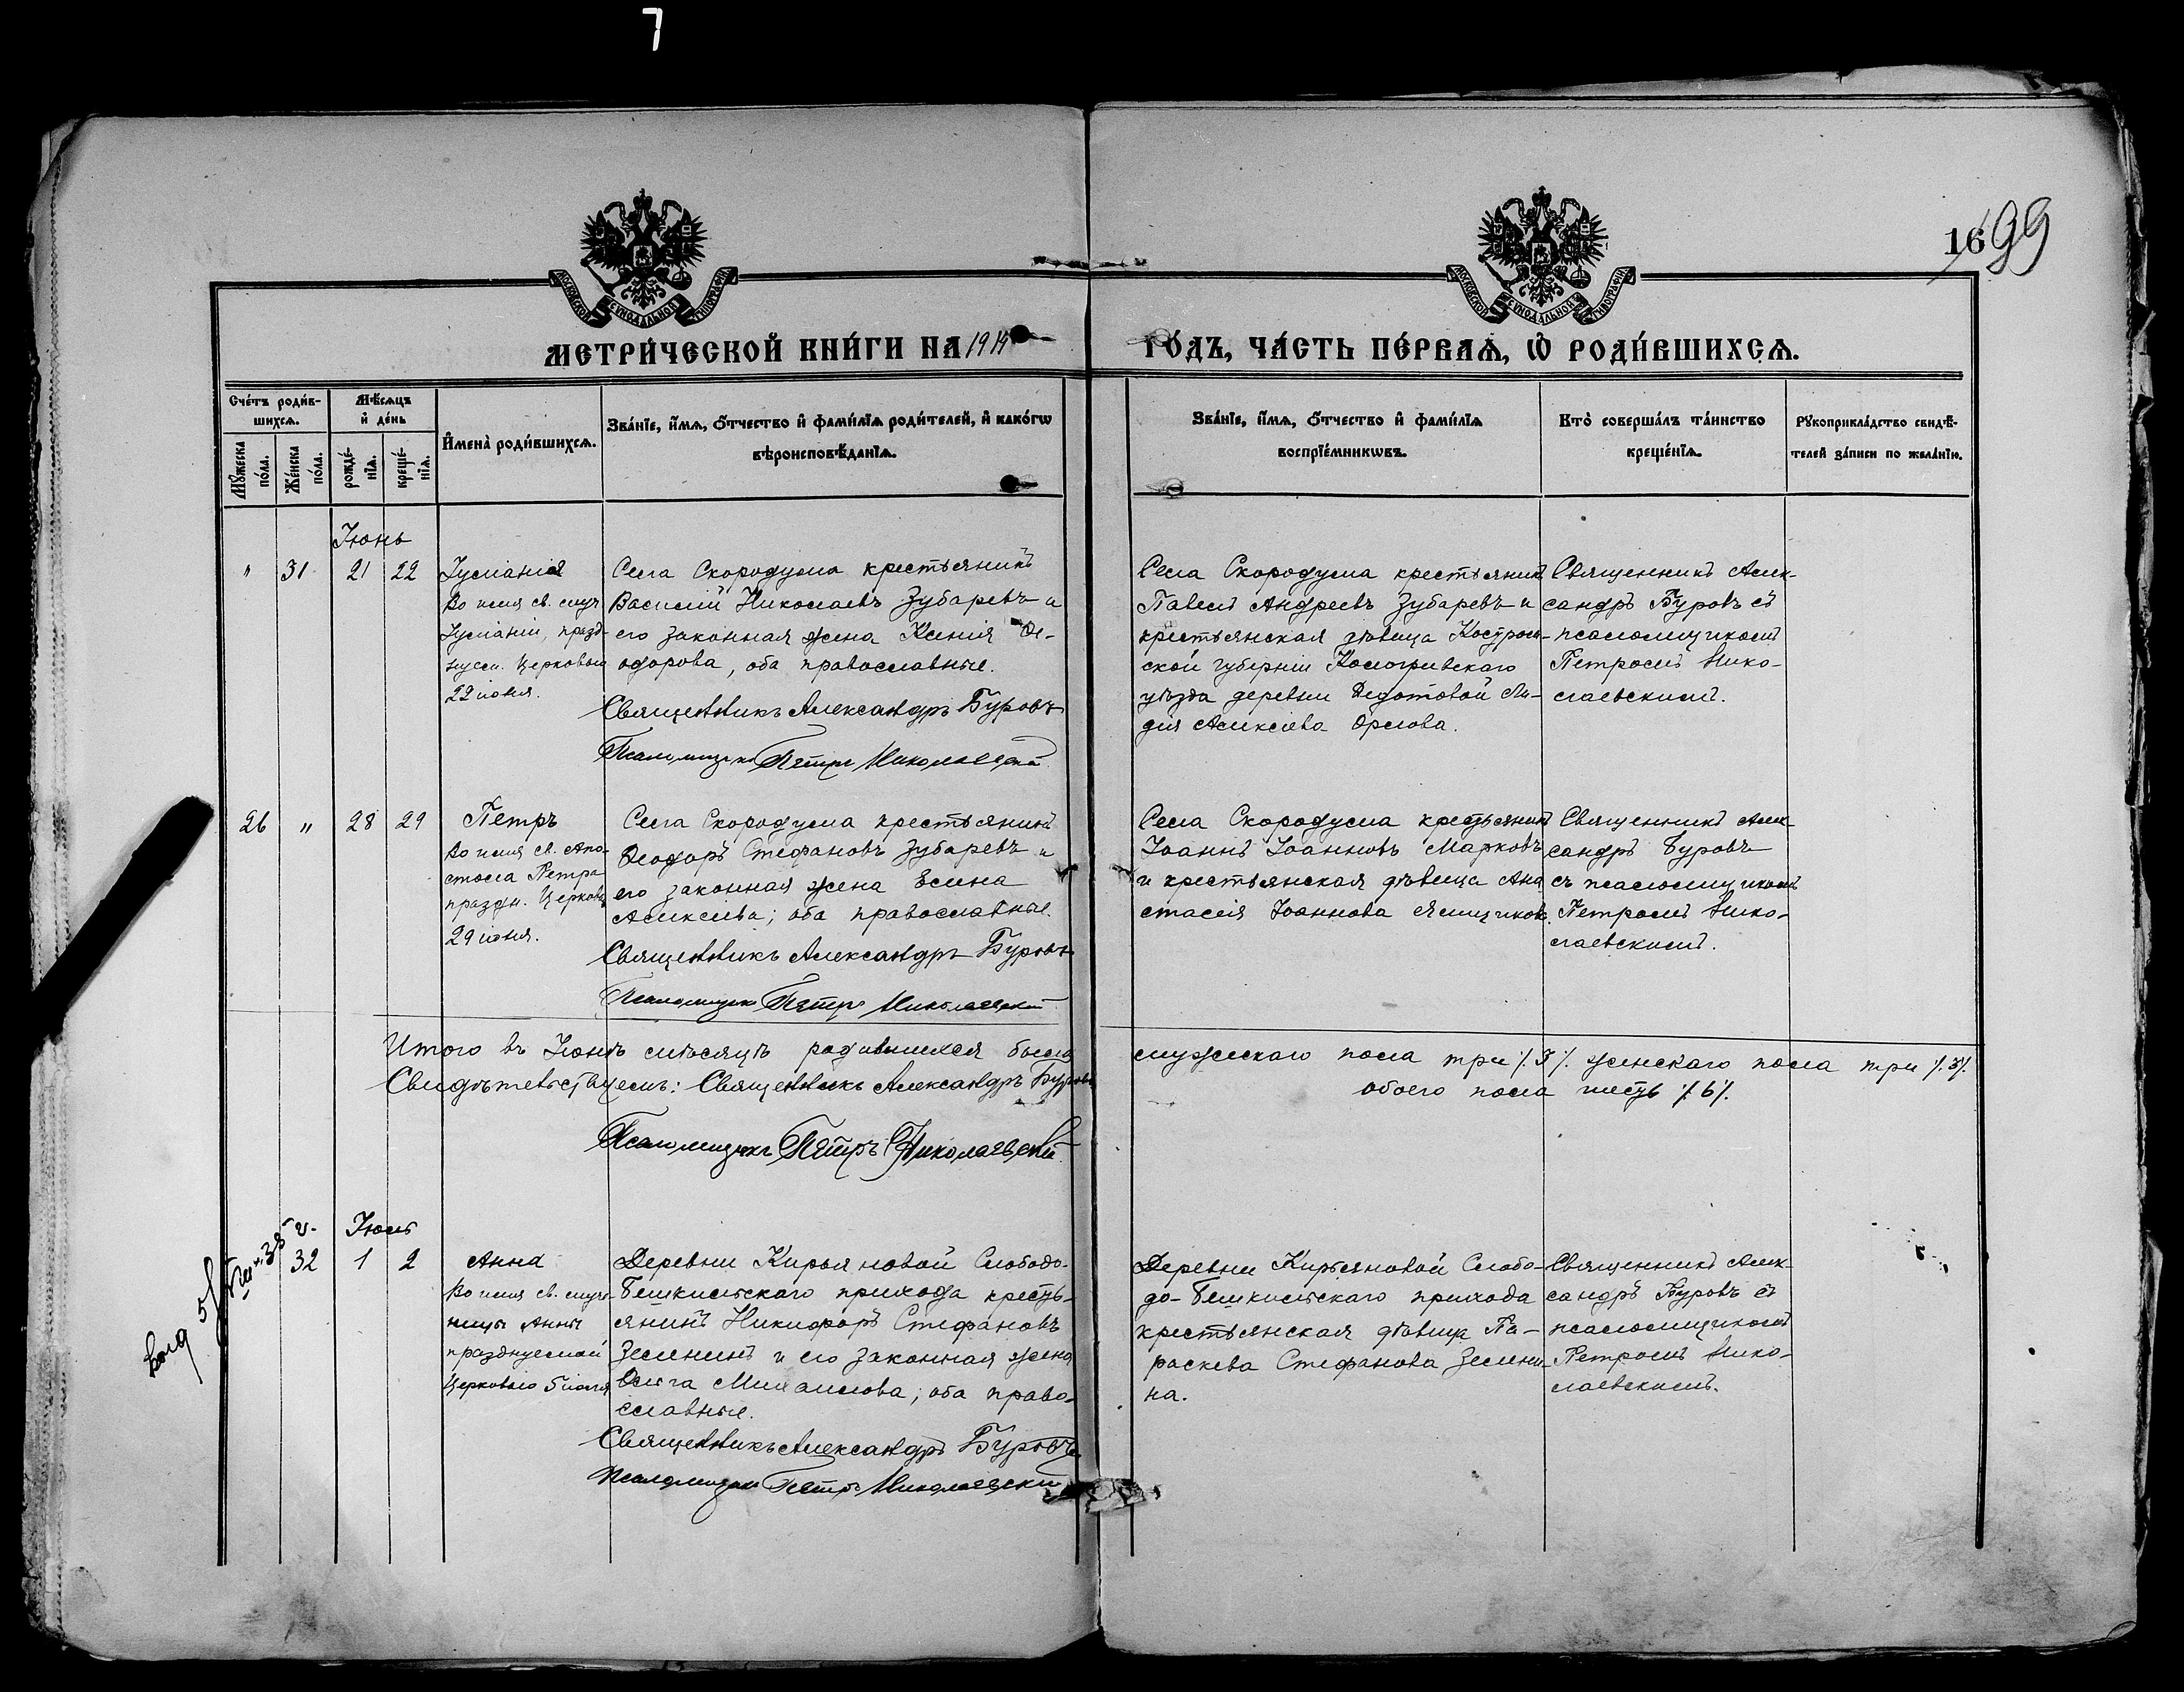 7
1699
МЕТРИ́ЧЕСКОЙ КНИ́ГИ НА 1914
ГО́ДЪ, ЧА́СТЬ ПЕ́РВАѦ, Ѡ҆ РОДИ́ВШИХСѦ.
МОСКОВСКОЙ СѴНОДАЛЬНОЙ ТИПОГРАФІИ
МОСКОВСКОЙ СѴНОДАЛЬНОЙ ТИПОГРАФІИ
Сче́тъ роди́в-
шихсѧ.
Мꙋ́жеска
по́ла.
Же́нска
по́ла.
Мѣ́сѧцъ
и҆ де́нь
рожде́-
нїѧ.
креще́-
нїѧ.
И҆мена̀ роди́вшихсѧ.
Зва́нїе, и҆́мѧ, ѻ҆́тчество и҆ фами́лїѧ роди́телей, и҆ како́гѡ
вѣроисповѣ́данїѧ.
Зва́нїе, и҆́мѧ, ѻ҆́тчество и҆ фами́лїѧ
воспрїе́мникѡвъ.
Кто̀ соверша́лъ та́инство
креще́нїѧ.
Рꙋкоприкла́дство свидѣ́-
телей за́писи по жела́нїю.
Іюнь
" 31 21 22
Іуліанія
Во имя св. муч
Іуліаніи, празд-
нуем. Церковью
22 іюня.
Села Скородума крестьянинъ
Василій Николаевъ Зубаревъ и
его законная жена Ксенія Ѳе-
одорова, оба православные.
Священникъ Александръ Буровъ
Псаломщикъ Петръ Николаевскій
Села Скородума крестьянинъ
Павелъ Андреевъ Зубаревъ и
крестьянская дѣвица Костром-
ской губерніи Кологривскаго
уѣзда деревни Федотовой Ли-
дія Алексіева Орлова.
Священникъ Алек-
сандръ Буровъ съ
псаломщикомъ
Петромъ Нико-
лаевскимъ.
26 " 28 29
Петръ
Во имя св. Апо-
стола Петра
праздн. Церковью
29 іюня.
Села Скородума крестьянинъ
Ѳеодоръ Стефановъ Зубаревъ и
его законная жена Елена
Алексіева; оба православные.
Священникъ Александръ Буровъ
Псаломщикъ Петръ Николаевскій
Села Скородума крестьянинъ
Іоаннъ Іоанновъ Марковъ
и крестьянская дѣвица Ана
стасія Іоаннова Ямщиков.
Священникъ Алек-
сандръ Буровъ
съ псаломщикомъ
Петромъ Нико-
лаевскимъ.
Итого въ Іюнѣ мѣсяцѣ родившихся было мужескаго пола три /.3/. женскаго пола три /.3/.
обоего пола шесть /.6/.
Свидѣтельствуемъ: Священникъ Александръ Буровъ
Псаломщикъ Петръ Николаевскій
Іюль
32 1 2
Анна
Во имя св. муче-
ницы Анны
празднуемой
Церковью 5 іюля
Деревни Кирьяновой Слободо-
Бешкильскаго прихода кресть-
янинъ Никифоръ Стефановъ
Зеленинъ и его законная жена
Ольга Михаилова; оба право-
славные.
Священникъ Александръ Буровъ
Псаломщикъ Петръ Николаевскій
Деревни Кирьяновой Слобо-
до-Бешкильскаго прихода
крестьянская дѣвица Па-
раскева Стефанова Зелени-
на.
Священникъ Алек-
сандръ Буровъ съ
псаломщикомъ
Петромъ Нико-
лаевскимъ.